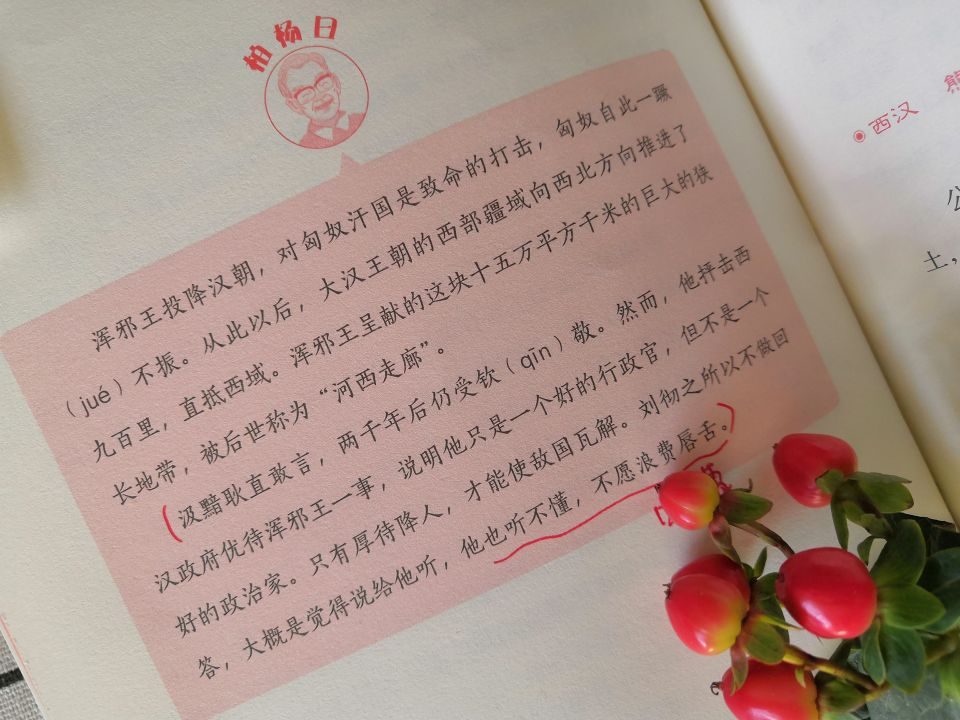 柏杨曰
浑邪王投降汉朝，对匈奴汗国是致命的打击，匈奴自此一蹶
（jué）不振。从此以后，大汉王朝的西部疆域向西北方向推进了
九百里，直抵西域。浑邪王呈献的这块十五万平方千米的巨大的狭
长地带，被后世称为“河西走廊”。
汲黯耿直敢言，两千年后仍受钦（qīn）敬。然而，他抨击西
汉政府优待浑邪王一事，说明他只是一个好的行政官，但不是一个
好的政治家。只有厚待降人，才能使敌国瓦解。刘彻之所以不做回
答，大概是觉得说给他听，他也听不懂，不愿浪费唇舌。
西汉
土，